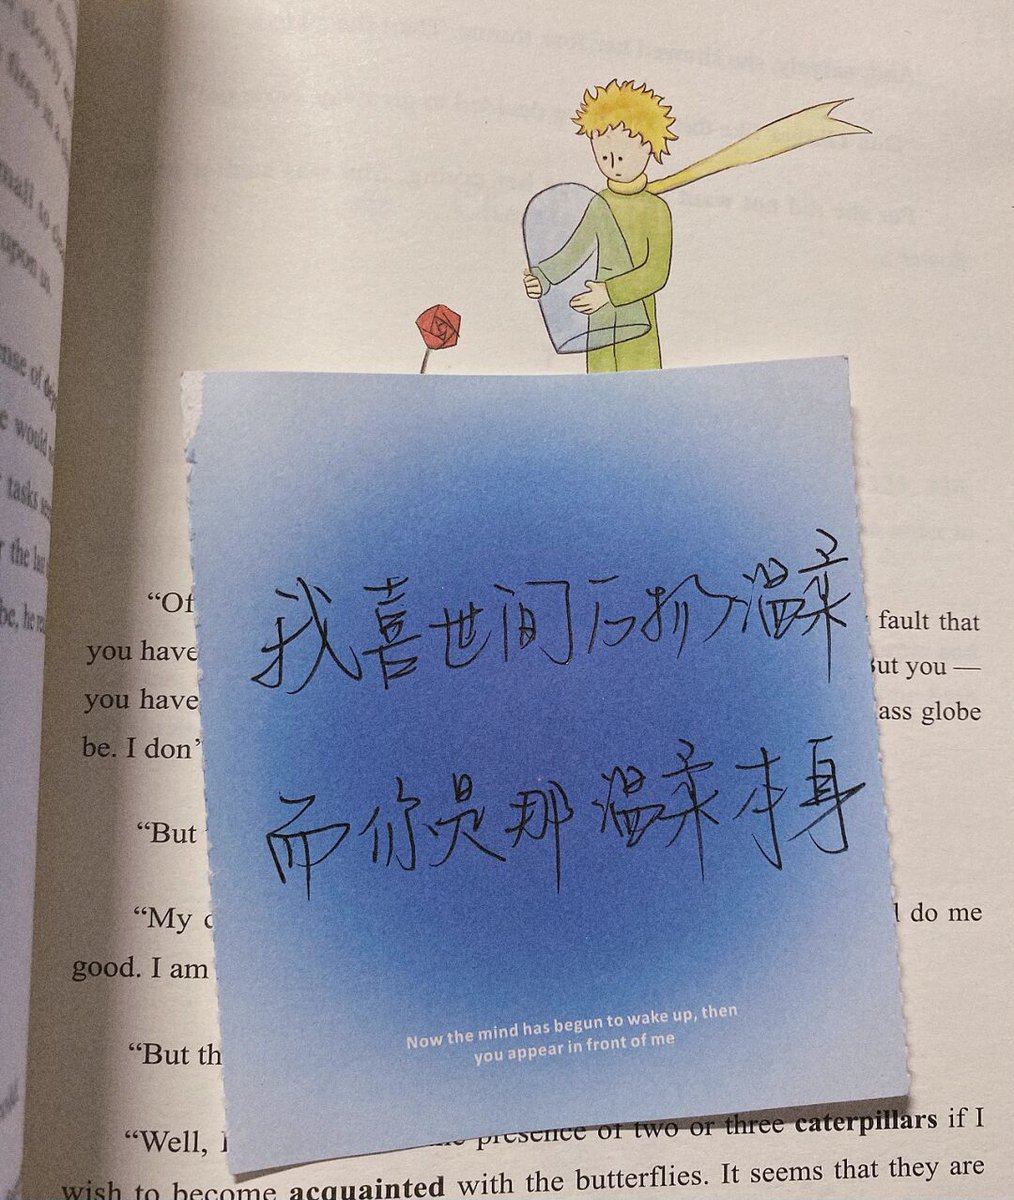 “Of fault that
you have ut you —
you have ass globe
be. I don’
我喜世间温柔
“But
而你是那温柔本身
“My do me
good. I am
Now the mind has begun to wake up, then
you appear in front of me
“But th
“Well, I presence of two or three caterpillars if I
wish to become acquainted with the butterflies. It seems that they are